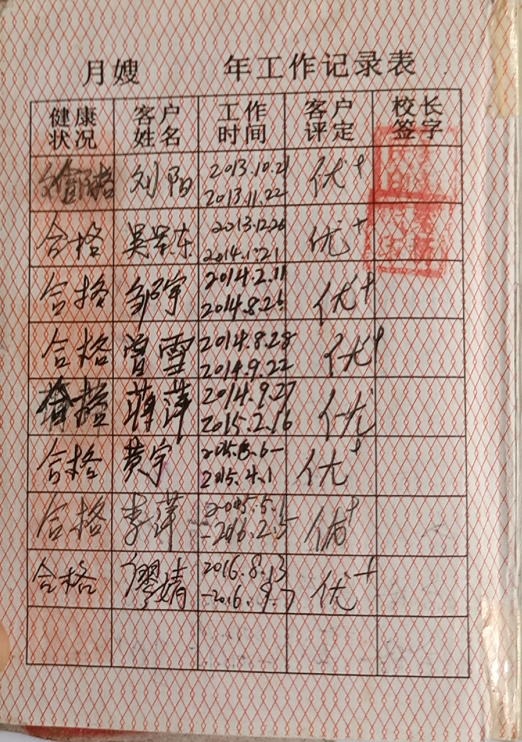 月嫂 年工作记录表
健康状况 客户姓名 工作时间 客户评定 校长签字
合格 刘阳 2013.10.21 2013.11.22 优+
合格 2013.12.26 2014.1.21 优+
合格 邹宇 2014.2.11 2014.8.26 优+
合格 曾雪 2014.8.28 2014.9.22 优+
合格 蒋萍 2014.9.27 2015.2.16 优
合格 黄宇 2015.4.1 优+
合格 李萍 -2016.2.5 优+
合格 廖婧 2016.8.13 -2016.9.7 优+